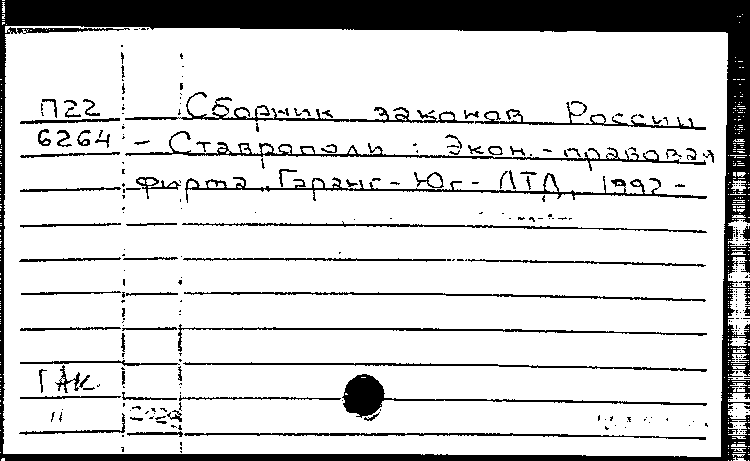 П22 Сборник законов России
6264 - Ставрополь : Экон.-правовая
фирма "Гаранс-Юг-ЛТД, 1992-
ГАК
11